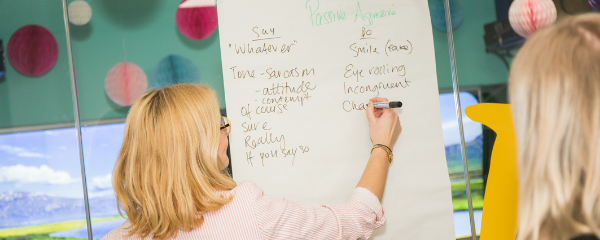 Passive Agressive
Say
"Whatever"
Tone - sarcasm
- attitude
- contempt
Of course
Sure
Really
If you say so
Do
Smile (fake)
Eye rolling
Incongruent
Cha